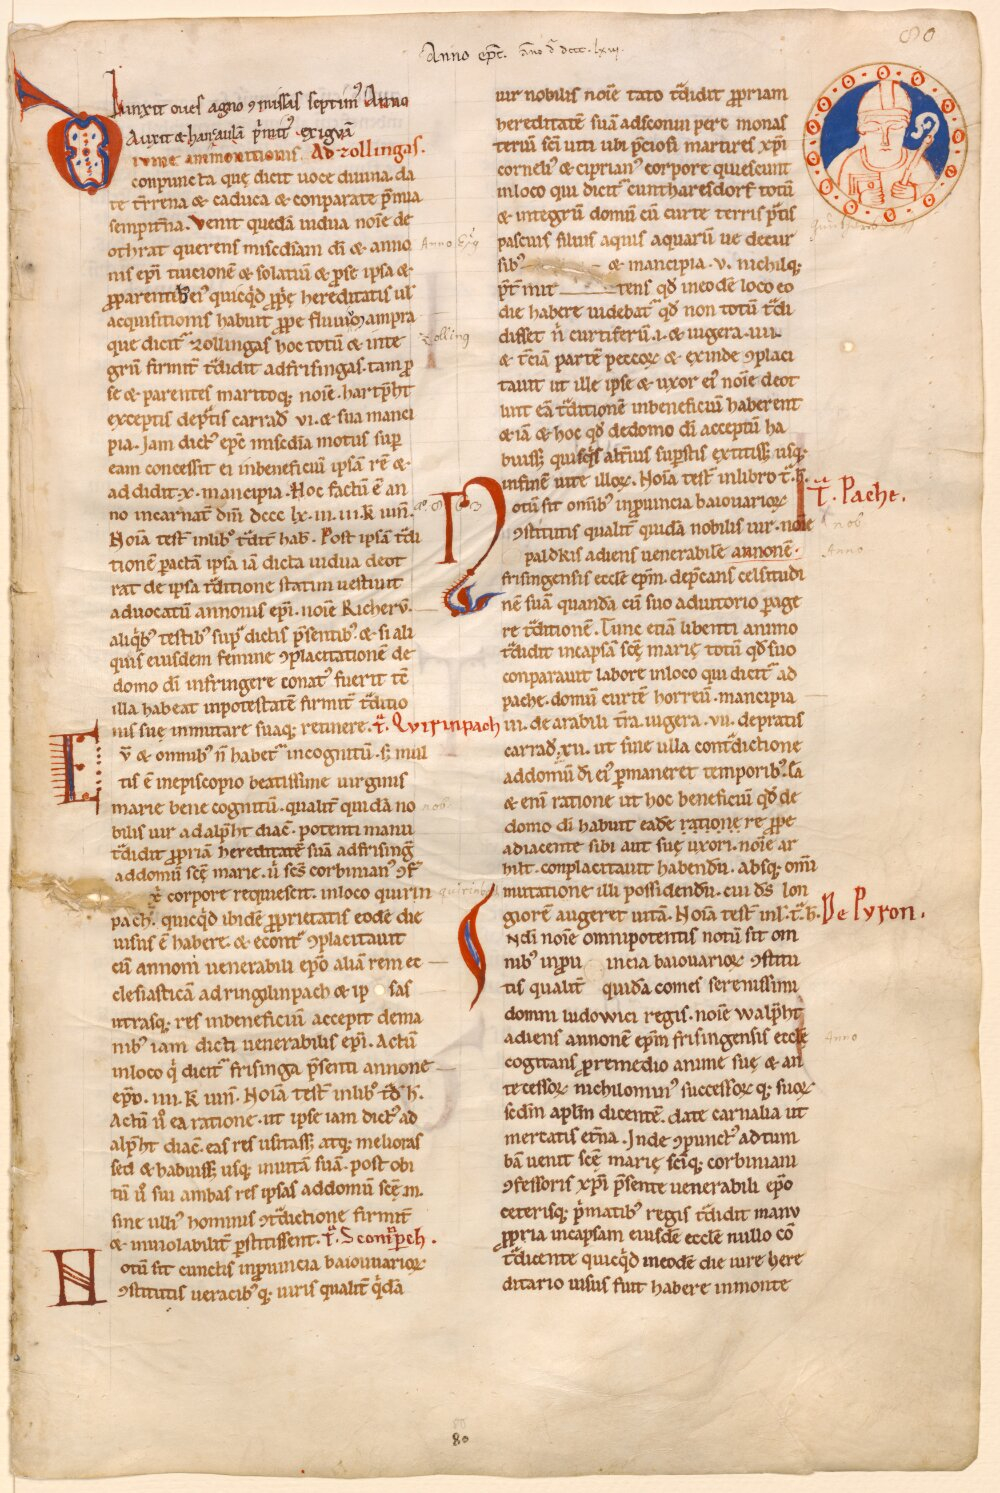 80
Anno ep̄c. āno d̄ dccc.lxiii.
Iunxit oues agno ꝯ missas septim᷒ Anno
Auxit & hanc aulā p̄mit᷒ exiguā
iuine ammonitionis. Ad zollingas.
conpuncta quę dicit uoce diuina. da
te t̄rrena & caduca & conparate p̄mia
sempit̄na. Venit quedā uidua noīe de
othrat querens misc̄diam dī & anno
nis ep̄i tuicionē & solatiū & ꝓse ipsa &
ꝓparentib᷒ ei᷒ quicq̄d ꝓpę hereditatis ul̄
acquisitionis habuit ꝓpe fluuiū ampra
que dicit᷑ zollingas hoc totū & inte
grū firmit̄ t᷑didit adfrisingas. tam ꝓ
se & parentes maritoq; noīe. hartp̄ht
exceptis dep̄tis carrad̄ vi. & sua manci
pia. Jam dict᷒ ep̄c misc̄dia motus sup
eam concessit ei inbeneficiū ipsā rē &
addidit. x. mancipia. Hoc factū ē an
no incarnat̄ dnī dccc lx. iii. iii. k iun̄.
Noīa test̄ inlib᷒ t᷑dit̄ hab̄. Post ipsā t᷑di
tionē pactā ipsa iā dicta uidua deot
rat de ipsa t᷑ditione statim uestiuit
aduocatū annonis ep̄i. noīe Richerū.
aliq̄b᷒ testib᷒ sup᷑ dictis p̄sentib᷒. & si ali
quis eiusdem femine ꝯplacitationē de
domo dī infringere conat᷒ fuerit tē
illa habeat inpotestatē firmit̄ t᷑ditio
nis suę inmutare suaq; retinere. t᷑. Qvirinpach
ū & omnib᷒ n̄ habet᷑ incognitū. s; mul
tis ē inepiscopio beatissime uirginis
marie bene cognitū. qualit̄ quidā no
bilis uir adalp̄ht diac̄. potenti manu
t᷑didit ꝓpriā hereditatē suā adfrisinḡ
addomū scē marie. ū scs̄ corbinian᷒ ꝯf᷑
x̄ corpore requiescit. inloco quirin
pach. quicq̄d ibidē ꝓprietatis eodē die
uisus ē habere. & econt᷑ ꝯplacitauit
cū annoni uenerabili ep̄o aliā rem ec
clesiasticā adringilinpach & ip sas
utrasq; res inbeneficiū accepit dema
nib᷒ iam dicti uenerabilis ep̄i. Actū
inloco q̄ dicit᷑ frisinga p̄senti annone
ep̄o. iiii. k iun̄. Noīa test̄ inlib᷒ t᷑d h̄.
Actū ū ea ratione. ut ipse iam dict᷒ ad
alp̄ht diac̄. eas res usitass; atq; melioras
sed & habuiss; usq; inuitā suā. post obi
tū ū sui ambas res ipsas addomū scē m̄.
sine ulli᷒ hominis ꝯt᷑dictione firmit̄
& inuiolabilit̄ p̄stitissent. t᷑. Scomp̄ch.
otū sit cunctis inꝓuincia baiouuariоꝝ
ꝯstitutis ueracib᷒ q; uiris qualit̄ q̄dā
uir nobilis noīe tato t᷑didit ꝓpriam
hereditatē suā adsconinperc monas
teriū scī uiti ubi p̄ciosi martires xp̄i
corneli᷒ & ciprian᷒ corpore quiescunt
inloco qui dicit᷑ cuntharesdorf totū
& integrū domū cū curte terris p̄tis
pascuis siluis aquis aquarū ue decur
sib᷒ & mancipia. v. nichilq;
p̄t mit tens qd̄ ineodē loco eo
die habere uidebat᷑ qd̄ non totū t᷑di
disset n̄ curtiferū. i. & iugera. iiii.
& t̄ciā partē peccoꝝ & exinde ꝯplaci
tauit ut ille ipse & uxor ei᷒ noīe deot
lint eā t᷑ditionē inbeneficiū haberent
& iā & hoc qd̄ dedomo dī acceptū ha
buiss; quisq̄s alt̄ius sup̄stis extitiss; usq;
infinē uite illoꝝ. Noīa test̄ inlibro t᷑. h̄.
t᷑. Pache.
otū sit omib᷒ inꝓuincia baiouarioꝝ
ꝯstitutis qualit̄ quidā nobilis uir. noīe
paldkis adiens uenerabilē annonē.
frisingensis eccl̄e ep̄m. dep̄cans celsitudi
nē suā quandā cū suo aduitorio page
re t᷑ditionē. Tunc etiā libenti animo
t᷑didit incapsā scē marię totū qd̄ suo
conparauit labore inloco qui dicit᷑ ad
pache. domū curtē horreū. mancipia
iii. de arabili t̄ra. iugera. vii. depratis
carrad̄. xii. ut sine ulla cont᷑dictione
addomū dī ei᷒ p̄maneret temporib᷒. Ea
& enī ratione ut hoc beneficiū qd̄ de
domo dī habuit eadē ratione re ꝓpe
adiacente sibi aut suę uxori. noīe ar
hilt. conplacitauit habendū. absq; omī
mutatione illi possidendū. cui ds̄ lon
giorē augeret uitā. Noīa test̄ inl̄. t᷑. h̄. De Pyron.
Ndī noīe omnipotentis notū sit om
nib᷒ inꝓu incia baiouarioꝝ ꝯstitu
tis qualit̄ quidā comes serenissimi
domni ludowici regis. noīe walp̄ht
adiens annonē ep̄m frisingensis eccl̄e
cogitans ꝓremedio anime suę & an
tecessoꝝ nichilomin᷒ successoꝝ q; suoꝝ
sedm̄ aplm̄ dicentē. date carnalia ut
mercatis et̄na. Inde ꝯpunct᷒ adtum
bā uenit scē marię scīq; corbiniani
ꝯfessoris xp̄i p̄sente uenerabili ep̄o
ceterisq; p̄matib᷒ regis t᷑didit manu
ꝓpria incapsam eiusdē eccl̄e nullo cō
t᷑dicente quicq̄d ineodē die iure here
ditario uisus fuit habere inmonte
Anno
Zolling
nob
Anno
Anno
80